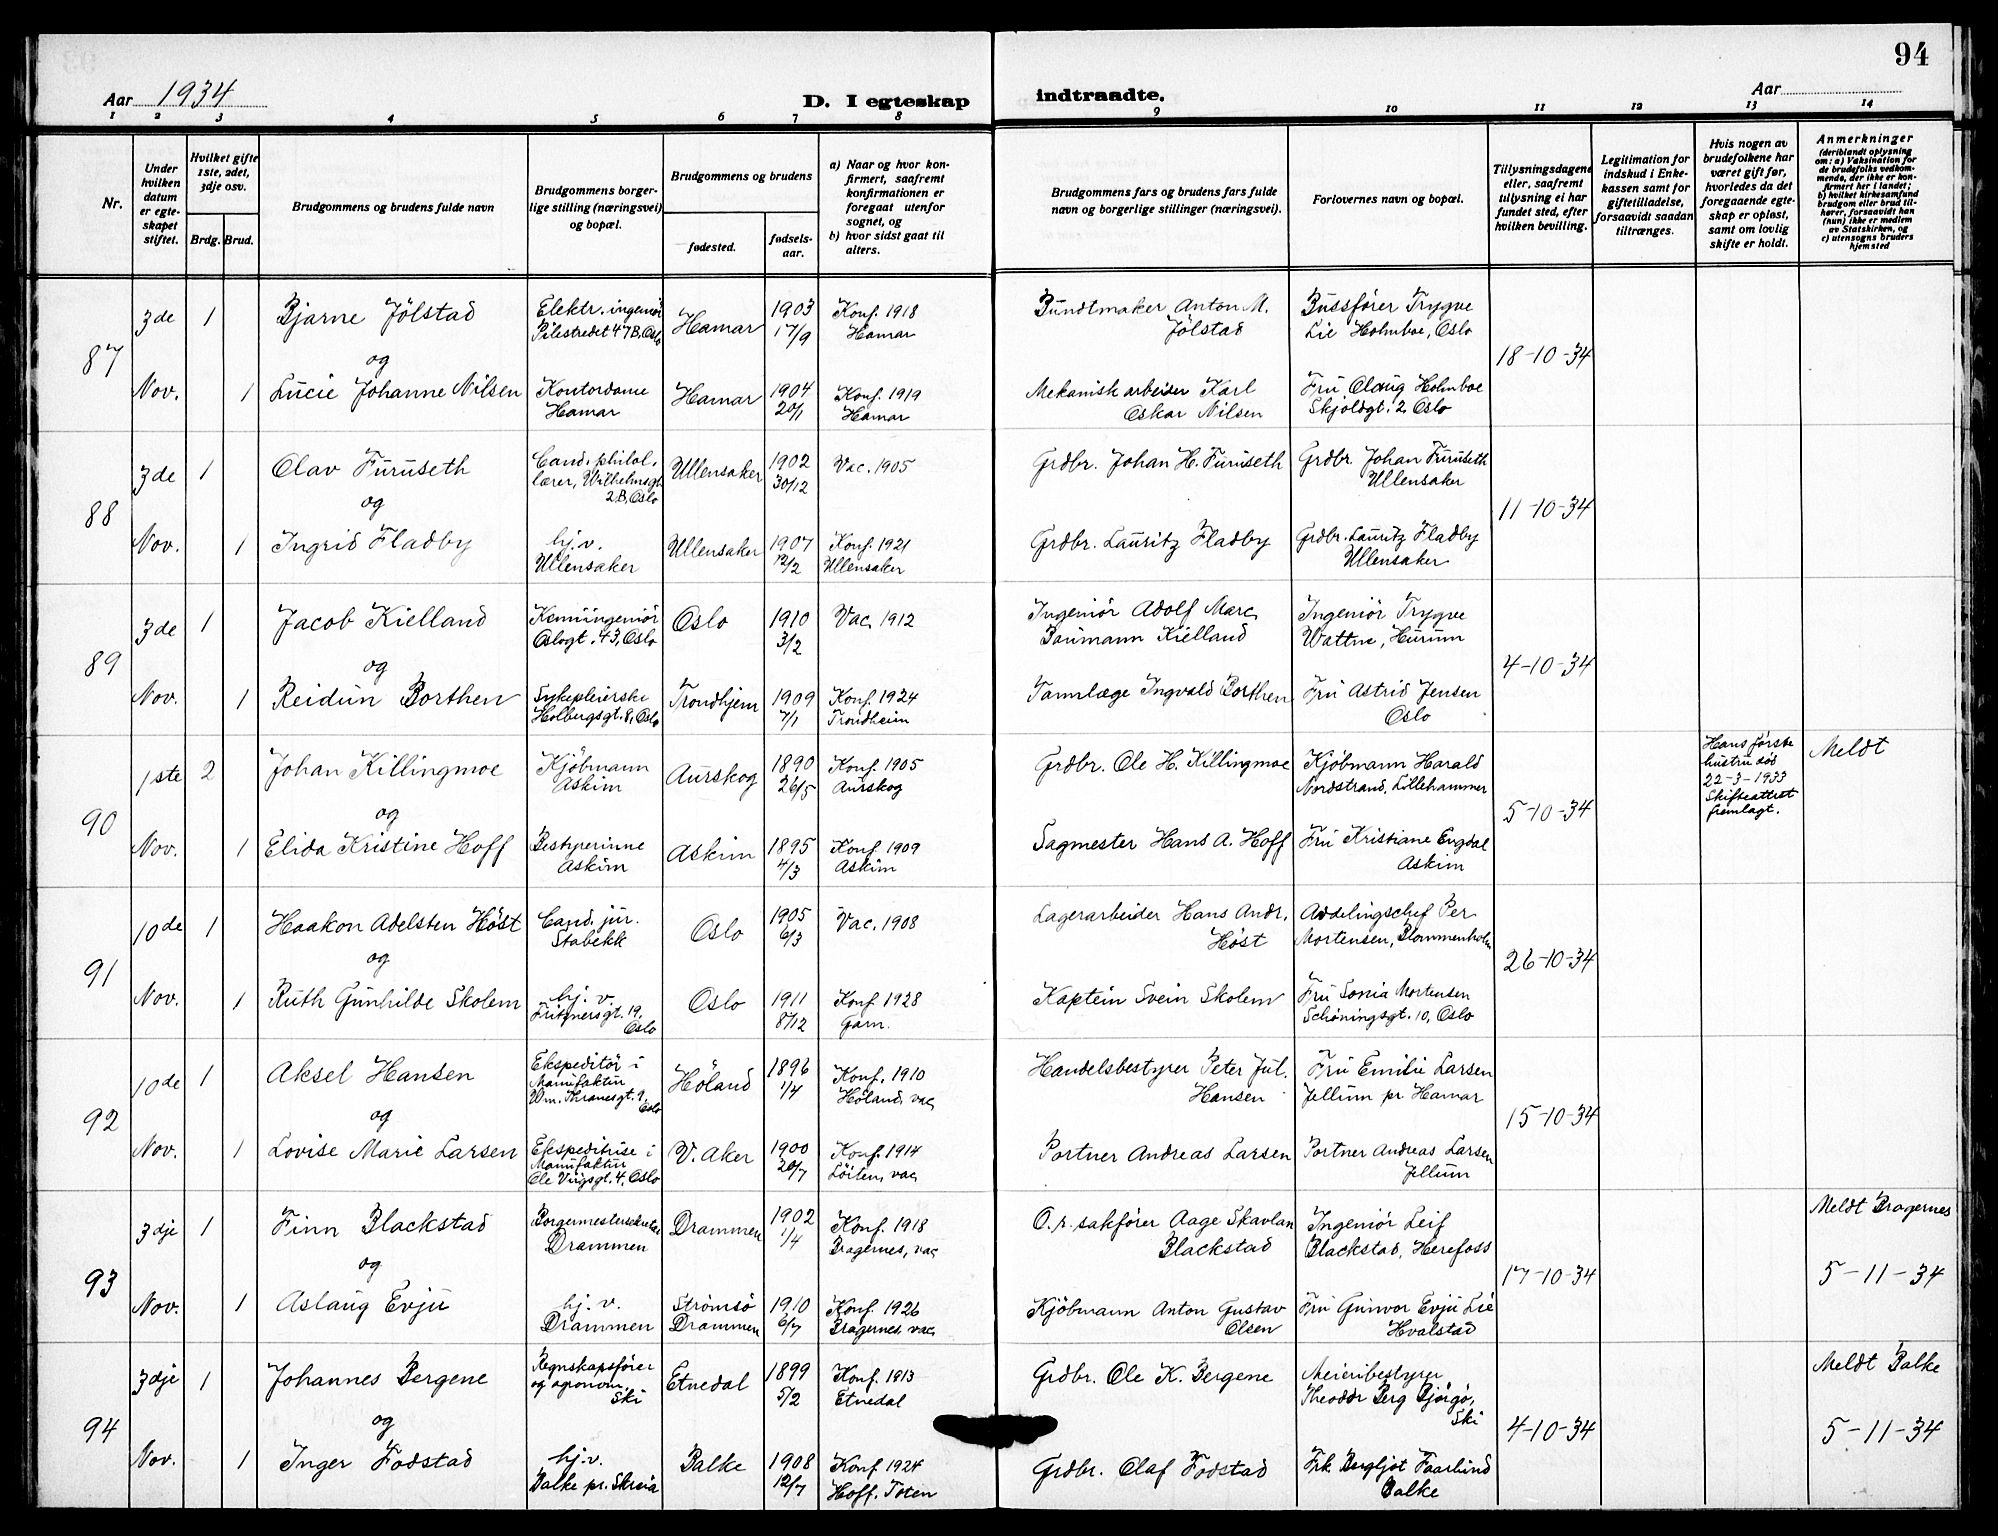 94
Aar 1934
D. I egteskap indtraadte.
Aar
1 2 3 4 5 6 7 8 9 10 11 12 13 14
Nr.
Under hvilken datum er egteskapet stiftet.
Hvilket gifte 1ste, 2det, 3dje osv.
Brdg. Brud.
Brudgommens og brudens fulde navn
Brudgommens borgerlige stilling (næringsvei) og bopæl.
Brudgommens og brudens
fødested.
fødselsaar.
a) Naar og hvor konfirmert, saafremt konfirmationen er foregaat utenfor sognet, og
b) hvor sidst gaat til alters.
Brudgommens fars og brudens fars fulde navn og borgerlige stillinger (næringsvei).
Forlovernes navn og bopæl.
Tillysningsdagene eller, saafremt tillysning ei har fundet sted, efter hvilken bevilling.
Legitimation for indskud i Enkekassen samt for giftetilladelse, forsaavidt saadan tiltrænges.
Hvis nogen av brudefolkene har været gift før, hvorledes da det foregaaende egteskap er opløst, samt om lovlig skifte er holdt.
Anmerkninger (deriblandt oplysning om: a) Vaksination for de brudefolks vedkommende, der ikke er konfirmert her i landet; b) hvilket kirkesamfund brudgom eller brud tilhører, forsaavidt han (hun) ikke er medlem av Statskirken, og c) utensogns bruders hjemsted
87
3de 1 Bjarne Jölstad Elektr. ingeniör Pilestredet 47B, Oslo Hamar 1903 17/9 Konf. 1918 Hamar Bundtmaker Anton M. Jölstad Bussfører Trygve Lie Holmboe, Oslo
og 18-10-34
Nov. 1 Lucie Johanne Nilsen Kontordame Hamar Hamar 1904 20/1 Konf. 1919 Hamar Mekanisk arbeider Karl Oskar Nilsen Fru Olaug Holmboe Skjoldgt. 2, Oslo
88
3de 1 Olav Furuseth Cand. philol. lærer, Wilhelmsgt. 2B, Oslo Ullensaker 1902 30/12 Vac. 1905 Grdbr. Johan H. Furuseth Grdbr. Johan Furuseth Ullensaker
og 11-10-34
Nov. 1 Ingrid Fladby hj.v. Ullensaker Ullensaker 1907 12/2 Konf. 1921 Ullensaker Grdbr. Lauritz Fladby Grdbr. Lauritz Fladby Ullensaker
89
3de 1 Jacob Kielland Kemiingeniör Oslogt. 43, Oslo Oslo 1910 3/2 Vac. 1912 Ingeniör Adolf Marc. Baumann Kielland Ingeniör Trygve Wattne, Hurum
og 4-10-34
Nov. 1 Reidun Borthen Sykepleierske Holbergsgt. 8, Oslo Trondhjem 1909 7/1 Konf. 1924 Trondheim Tannlæge Ingvald Borthen Fru Astrid Jensen Oslo
90
1ste 2 Johan Killingmoe Kjöbmann Askim Aurskog 1890 26/5 Konf. 1905 Aurskog Grdbr. Ole H. Killingmoe Kjöbmann Harald Nordstrand, Lillehammer Hans første hustru död 22-3-1933 Skifteattest fremlagt. Meldt
og 5-10-34
Nov. 1 Elida Kristine Hoff Bestyrerinne Askim Askim 1895 4/3 Konf. 1909 Askim Sagmester Hans A. Hoff Fru Kristiane Engdal Askim
91
10de 1 Haakon Adelsten Höst Cand. jur. Stabekk Oslo 1905 6/3 Vac. 1908 Lagerarbeider Hans Andr. Höst Avdelingschef Per Mortensen, Blommenholm
og 26-10-34
Nov. 1 Ruth Gunhilde Skolem hj. v. Fritznersgt. 19, Oslo Oslo 1911 8/12 Konf. 1928 Garn. Kaptein Svein Skolem Fru Sonia Mortensen Schøningsgt. 10, Oslo
92
10de 1 Aksel Hansen Ekspeditör i Manufaktur Wm. Thranesgt. 9, Oslo Höland 1896 1/4 Konf. 1910 Höland, vac. Handelsbestyrer Peter Jul. Hansen Fru Emilie Larsen Jellum pr Hamar
og 15-10-34
Nov. 1 Lovise Marie Larsen Ekspeditrise i Manufaktur Ole Vigsgt. 4, Oslo V. Aker 1900 20/7 Konf. 1914 Löiten, vac. Portner Andreas Larsen Portner Andreas Larsen Jellum
93
3dje 1 Finn Blackstad Borgermestersekretær Drammen Drammen 1902 1/4 Konf. 1918 Bragernes, vac. O.r. sakfører Aage Skavlan Blackstad Ingeniör Leif Blackstad, Herefoss Meldt Bragernes
og 17-10-34 5-11-34
Nov. 1 Aslaug Evju hj. v. Drammen Strömsö Drammen 1910 6/7 Konf. 1926 Bragernes, vac. Kjöbmann Anton Gustav Olsen Fru Gunvor Evju Lie Hvalstad
94
3dje 1 Johannes Bergene Regnskapsfører og agronom, Ski Etnedal 1899 5/2 Konf. 1913 Etnedal Grdbr. Ole K. Bergene Meieribestyrer Theodor Berg Björgö, Ski Meldt Balke
og 4-10-34 5-11-34
Nov. 1 Inger Fodstad hj.v. Balke pr. Skreia Balke 1908 12/7 Konf. 1924 Hoff, Toten Grdbr. Olaf Fodstad Frk. Bergljot Faarlund Balke